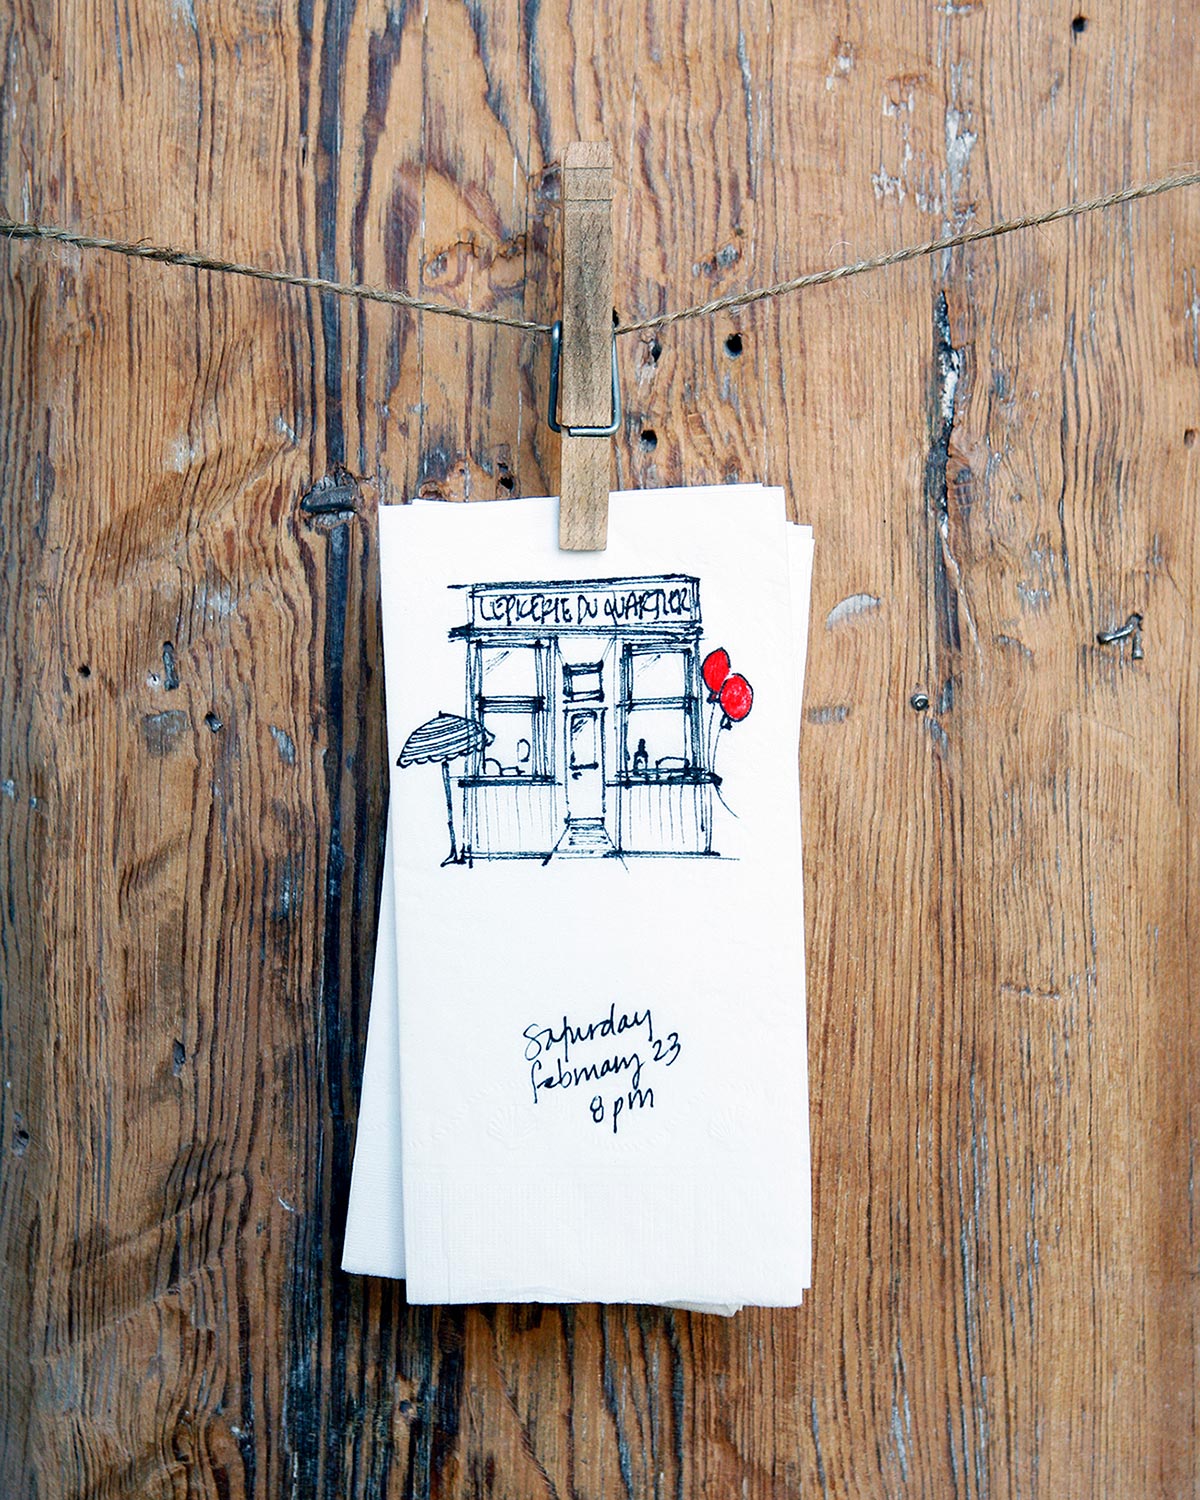 L'EPICERIE DU QUARTIER
Saturday
february 23
8 pm